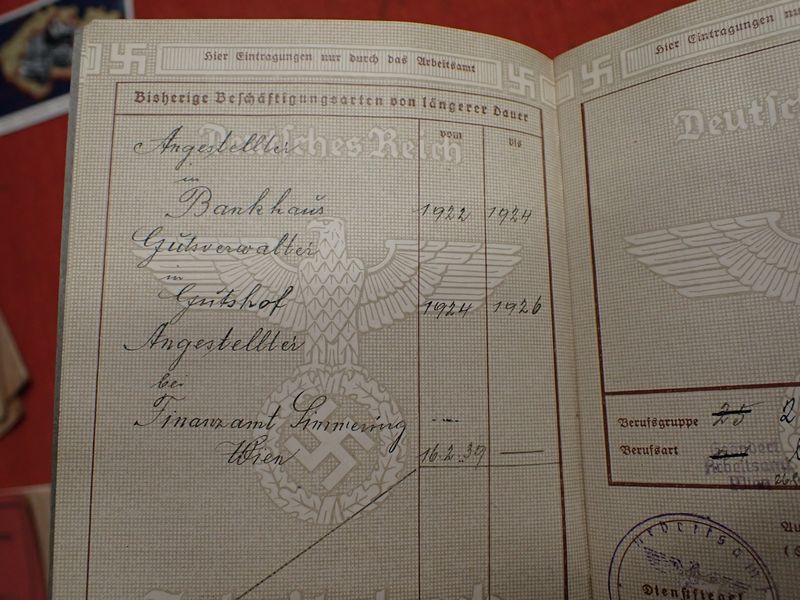 Hier Eintragungen nur durch das Arbeitsamt
Bisherige Beschäftigungsarten von längerer Dauer
vom
bis
Deutsches Reich
Angestellter
in
Bankhaus 1922 1924
Gutsverwalter
in
Gutshof 1924 1926
Angestellter
bei
Finanzamt Simmering
Wien 16.2.39
Hier Eintragungen nur
Deutsc
Berufsgruppe 25 2
Berufsart
Arbeitsamt
Wien
Arbeitsam
Dienstsiegel